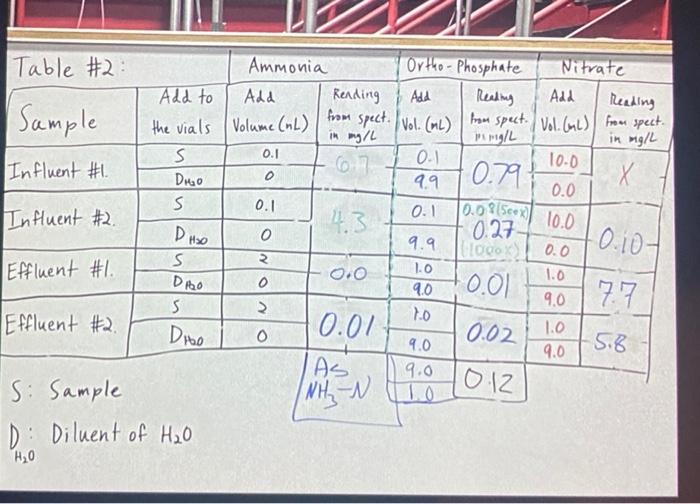 Table #2: Ammonia Ortho-Phosphate Nitrate
Sample Add to the vials Add Volume (mL) Reading from spect. in mg/L Add Vol. (mL) Reading from spect. in mg/L Add Vol. (mL) Reading from spect. in mg/L
Influent #1. S 0.1 6.7 0.1 0.79 10.0 X
DH2O 0 9.9 0.0
Influent #2. S 0.1 4.3 0.1 0.08 (500x) 10.0 0.10
DH2O 0 9.9 0.27 (1000x) 0.0
Effluent #1. S 2 0.0 1.0 0.01 1.0 7.7
DH2O 0 9.0 9.0
Effluent #2. S 2 0.01 1.0 0.02 1.0 5.8
DH2O 0 9.0 9.0
As 9.0 0.12
NH3-N 1.0
S: Sample
D: Diluent of H2O
H2O